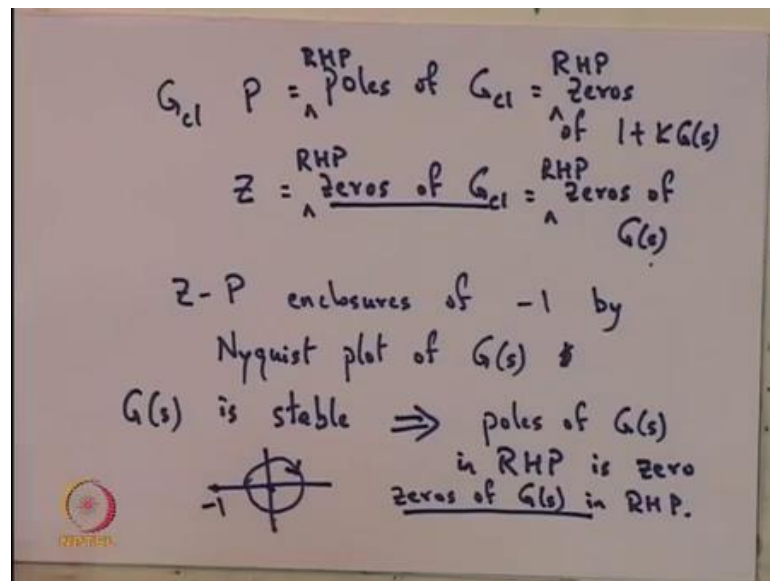 RHP RHP
G_cl P = ^ poles of G_cl = ^ zeros
of 1+KG(s)
RHP RHP
Z = ^ zeros of G_cl = ^ zeros of
G(s)
Z-P enclosures of -1 by
Nyquist plot of G(s)
G(s) is stable ⇒ poles of G(s)
in RHP is zero
-1 zeros of G(s) in RHP.
NPTEL